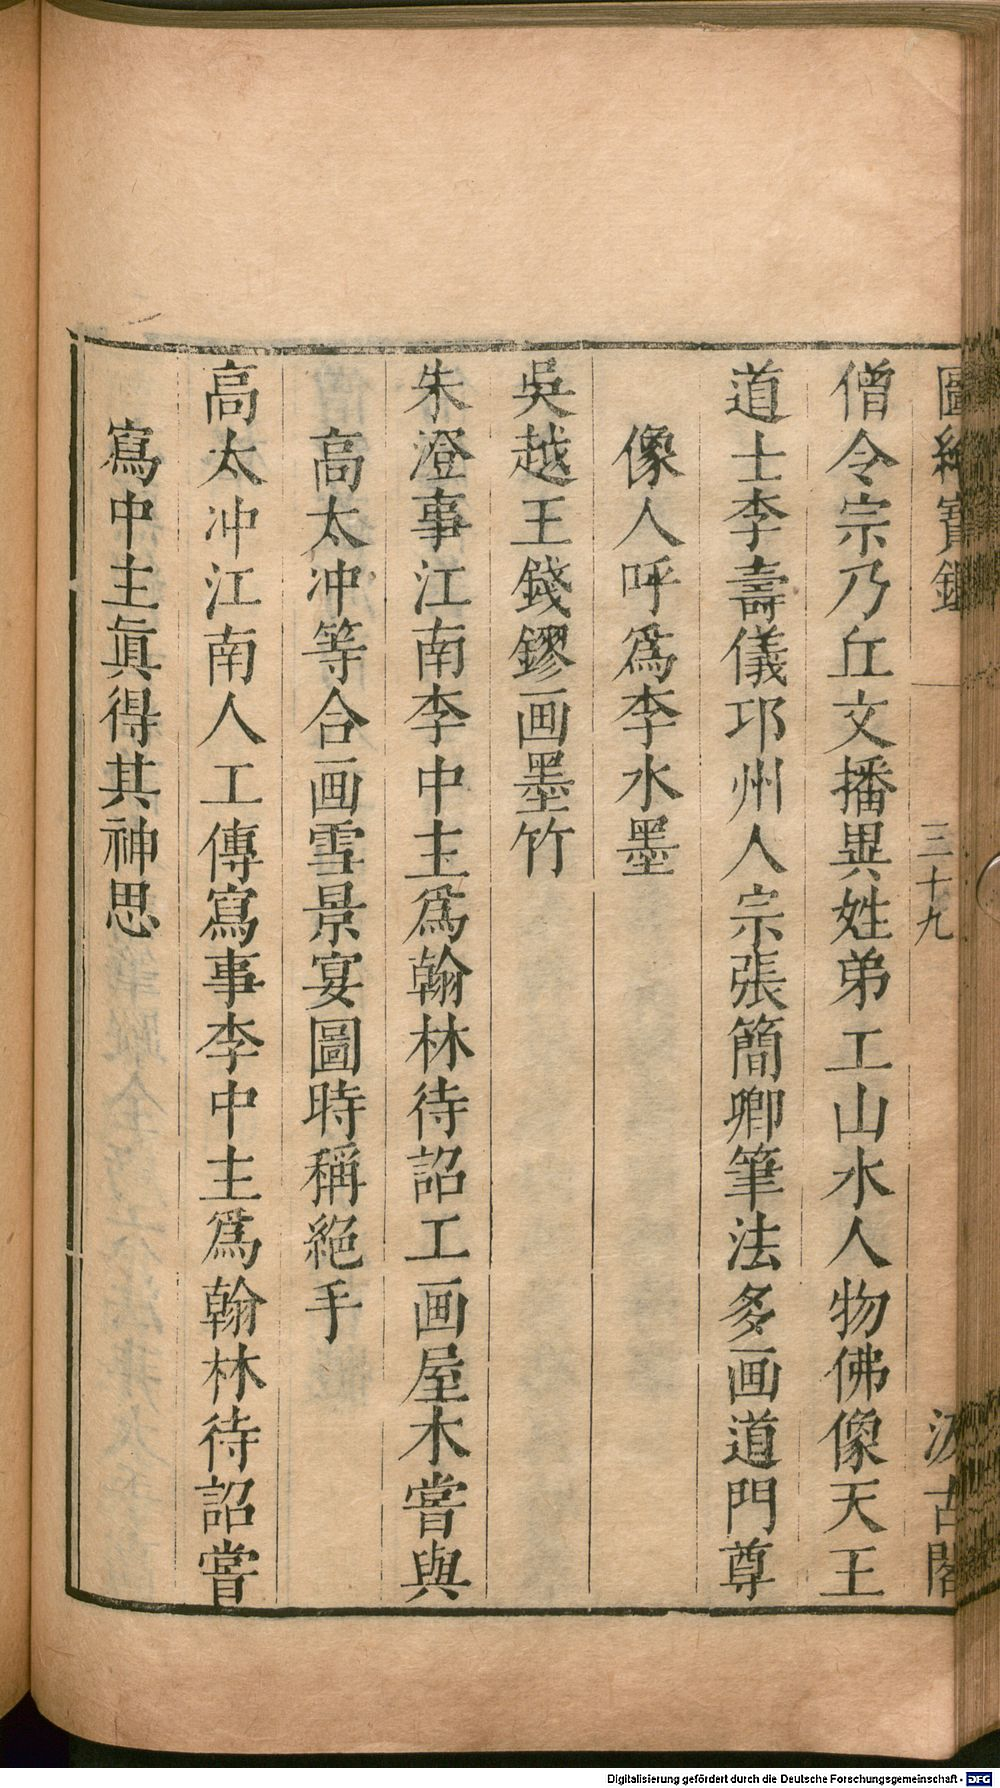 圖繪寶鑑
三十九
汲古閣
僧令宗乃丘文播異姓弟工山水人物佛像天王
道士李壽儀邛州人宗張簡卿筆法多画道門尊
像人呼爲李水墨
吳越王錢鏐画墨竹
朱澄事江南李中主爲翰林待詔工画屋木嘗與
高太冲等合画雪景宴圖時稱絕手
高太冲江南人工傳寫事李中主爲翰林待詔嘗
寫中主眞得其神思
Digitalisierung gefördert durch die Deutsche Forschungsgemeinschaft - DFG